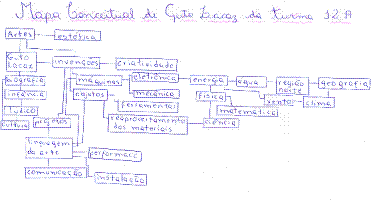 Mapa Conceitual de Guto Lacaz da turma 12A
Artes
estética
Guto
Lacaz
invenções
criatividade
maquinas
eletrônica
energia
agua
região
norte
geografia
biografia
infância
objetos
mecânica
física
vento
clima
ferramentas
lúdico
matemática
cultura
reaproveitamento
dos materiais
ciência
linguagem
da arte
performace
comunicação
instalação